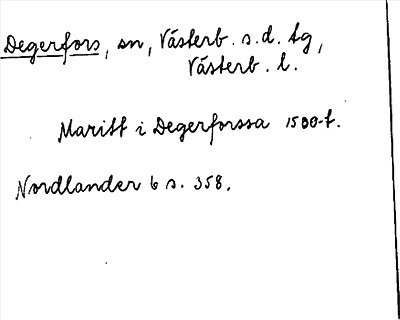 Degerfors, sn, Västerb. s.d. tg,
Västerb. l.
Maritt i Degerforssa 1500-t.
Nordlander 6 s. 358.